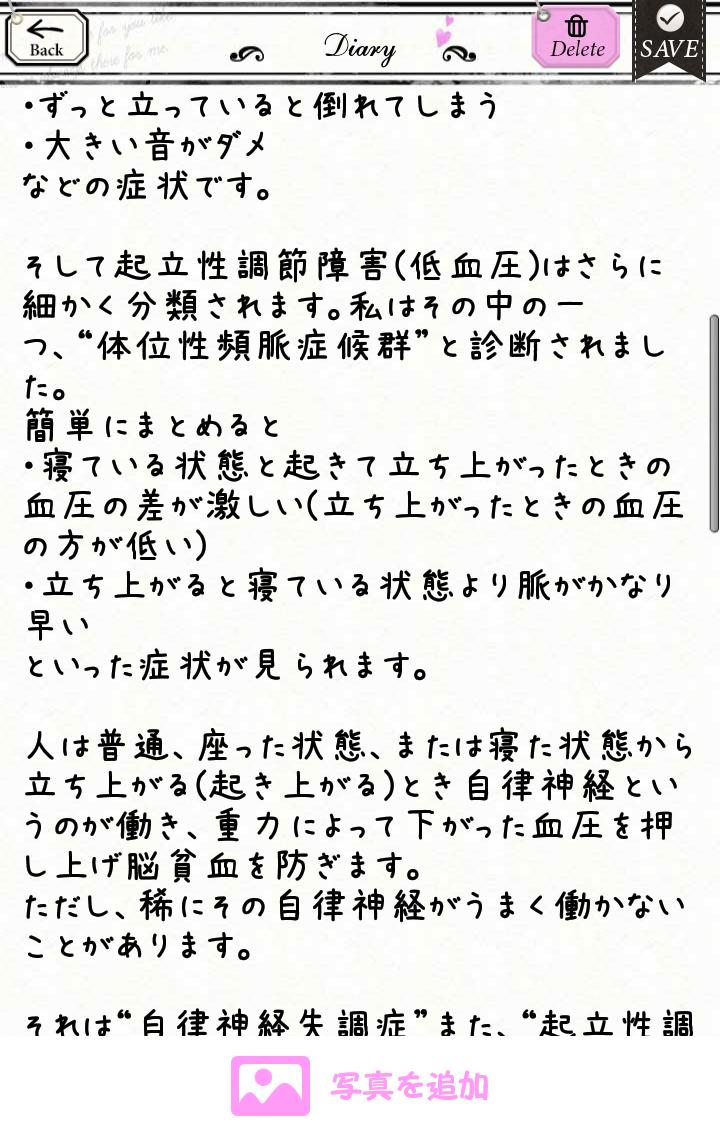 Back
for you like
there for me.
Diary
Delete
SAVE
・ずっと立っていると倒れてしまう
・大きい音がダメ
などの症状です。
そして起立性調節障害(低血圧)はさらに
細かく分類されます。私はその中の一
つ、“体位性頻脈症候群”と診断されまし
た。
簡単にまとめると
・寝ている状態と起きて立ち上がったときの
血圧の差が激しい(立ち上がったときの血圧
の方が低い)
・立ち上がると寝ている状態より脈がかなり
早い
といった症状が見られます。
人は普通、座った状態、または寝た状態から
立ち上がる(起き上がる)とき自律神経とい
うのが働き、重力によって下がった血圧を押
し上げ脳貧血を防ぎます。
ただし、稀にその自律神経がうまく働かない
ことがあります。
それは“自律神経失調症”また、“起立性調
写真を追加